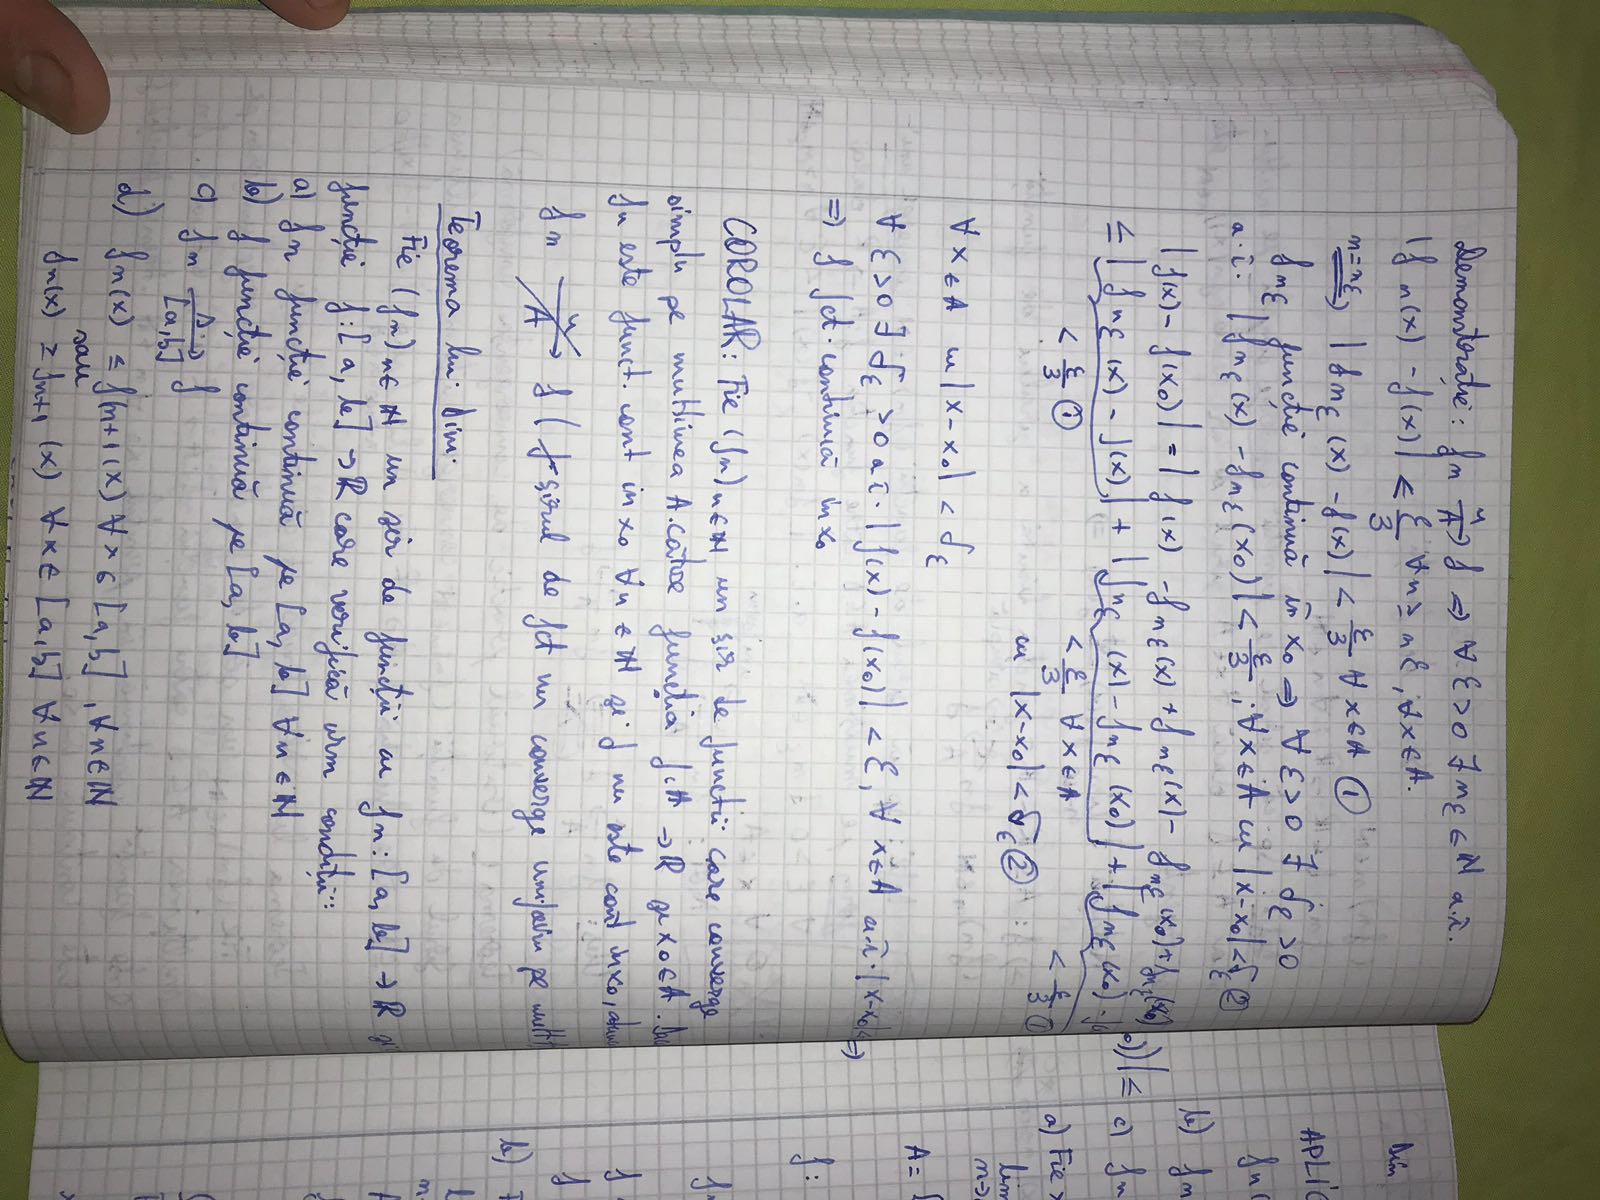 Demonstrație: fn u→A f ⇒ ∀ ε>0 ∃ nε ∈ N a.î.
|fn(x) - f(x)| < ε/3 ∀n ≥ nε, ∀x∈A.
n=nε ⟹ |fnε(x) - f(x)| < ε/3 ∀ x∈A ①
fnε funcție continuă în x0 ⇒ ∀ ε>0 ∃ δε>0
a.î. |fnε(x) - fnε(x0)| < ε/3, ∀x∈A cu |x-x0|<δε ②
|f(x) - f(x0)| = |f(x) - fnε(x) + fnε(x) - fnε(x0) + fnε(x0)
≤ |fnε(x) - f(x)| + |fnε(x) - fnε(x0)| + |fnε(x0) - f(x0)| ≤
< ε/3 ① < ε/3 ∀x∈A < ε/3 ①
cu |x-x0|<δε ②
∀ x∈A cu |x-x0| < δε
∀ ε>0 ∃ δε>0 a.î. |f(x) - f(x0)| < ε, ∀ x∈A a.î. |x-x0| ⇒
⇒ f fct. continuă în x0
COROLAR: Fie (fn) n∈N un șir de funcții care converge
simplu pe mulțimea A către funcția f:A → R și x0∈A.
fn este funct. cont în x0 ∀n∈N și f nu este cont în x0, atunci
fn u→A f (șirul de fct nu converge uniform pe mult
Teorema lui Dini:
Fie (fn) n∈N un șir de funcții cu fn: [a, b] → R și
funcție f:[a, b] → R care verifică urm condiții:
a) fn funcție continuă pe [a, b] ∀n∈N
b) f funcție continuă pe [a, b]
c) fn s→[a,b] f
d) fn(x) ≤ fn+1(x) ∀ x∈[a,b], ∀n∈N
sau
fn(x) ≥ fn+1(x) ∀ x∈[a,b] ∀n∈N
Dim
APLIC
fn(
b) fn
c) fn
a) Fie
lim
A = {
f:
b)